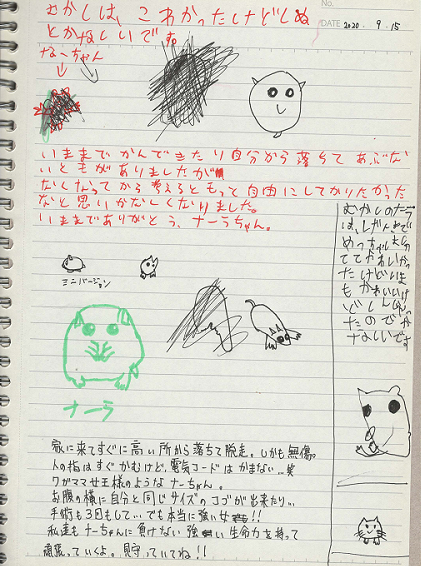 No.
DATE 2020. 9. 15
むかしは、こわかったけどしぬ
とかなしいです。
なーちゃん
いままでかんできたり自分から落ちてあぶな
いときがありましたが
なくなってから考えるともっと自由にしてかりたかった
なと思いかなしくなりました。
いままでありがとう、ナーラちゃん。
むかしのナーラ
は、
めっちゃ
ててかわいかっ
たけどいま
もかわいいけ
どしんじゃっ
たのでか
なしいです。
ミニバージョン
ナーラ
家に来てすぐに高い所から落ちて脱走。しかも無傷。
人の指はすぐかむけど、電気コードはかまない…笑
ワガママ女王様のようなナーちゃん。
お腹の横に自分と同じサイズのコブが出来たり…
手術も3回もして…でも本当に強い女!!
私達もナーちゃんに負けない強い生命力を持って
頑張っていくよ。見守っていてね!!